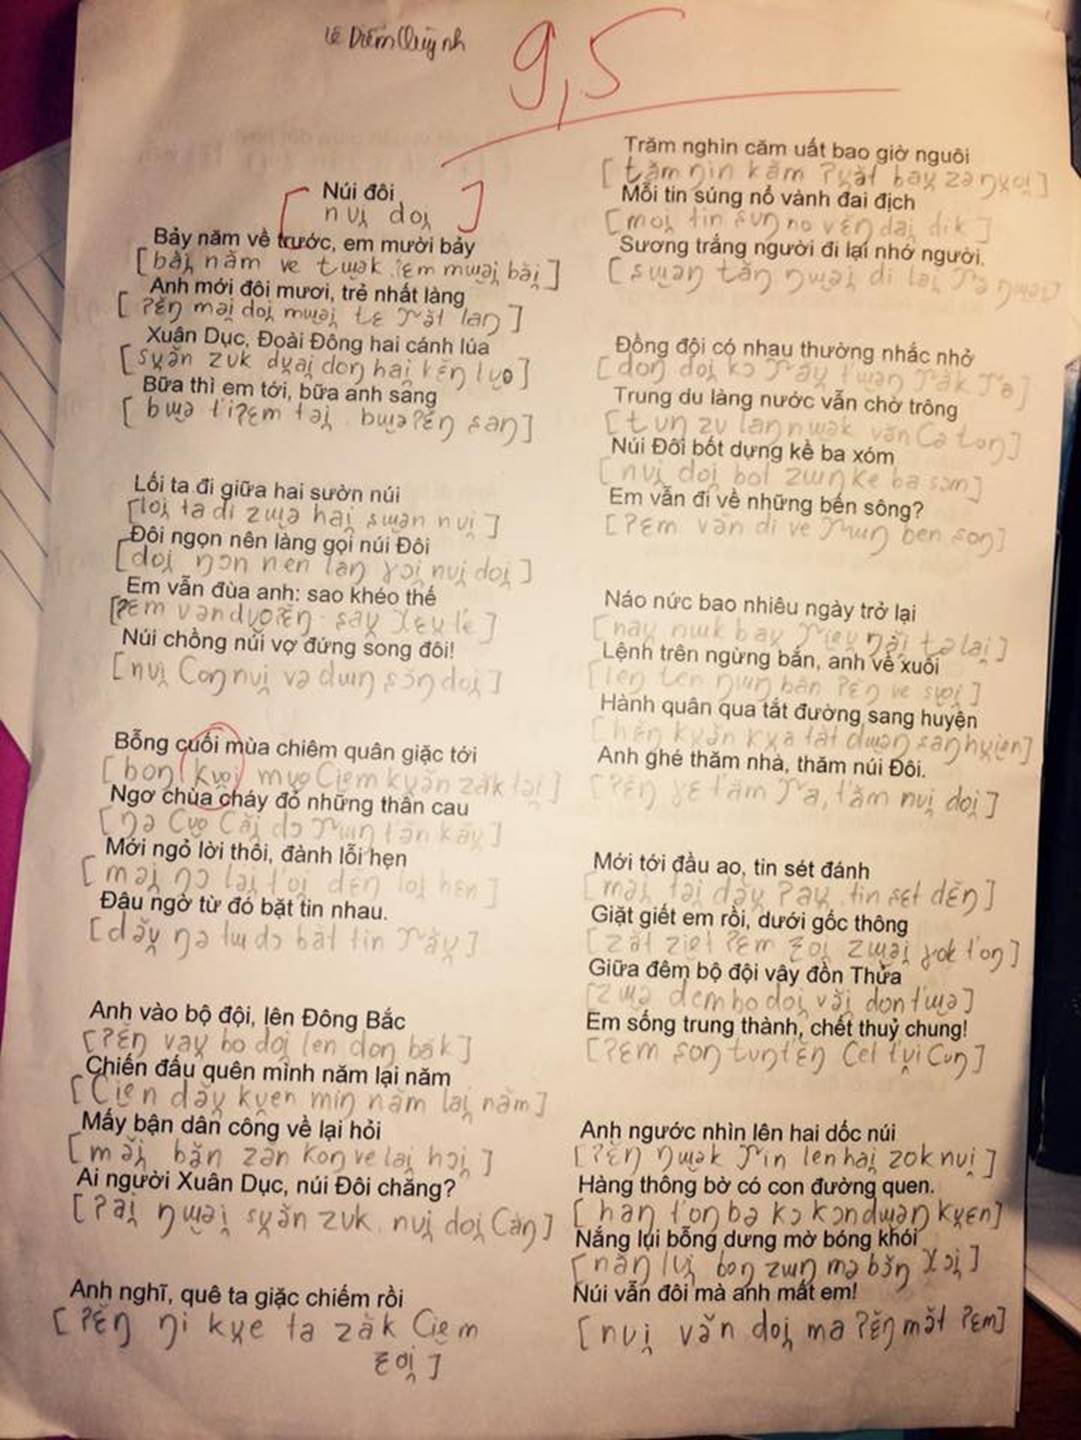 Lê Diễm Quỳnh
9,5
Núi đôi
[nui̯ doi̯]
Bảy năm về trước, em mười bảy
[băi̯ năm ve tɯək ʔɛm mɯəi̯ băi̯]
Anh mới đôi mươi, trẻ nhất làng
[ʔɛ̆ŋ məi̯ doi̯ mɯəi̯ tɛ ɲɤ̆t laŋ]
Xuân Dục, Đoài Đông hai cánh lúa
[su̯ɤ̆n zuk du̯ai̯ doŋ hai̯ kɛ̆ŋ luo]
Bữa thì em tới, bữa anh sang
[bɯə t'i ʔɛm təi̯ bɯə ʔɛ̆ŋ ʂaŋ]
Lối ta đi giữa hai sườn núi
[loi̯ ta di zɯə hai̯ ʂɯən nui̯]
Đôi ngọn nên làng gọi núi Đôi
[doi̯ ŋɔn nen laŋ ɣɔi̯ nui̯ doi̯]
Em vẫn đùa anh: sao khéo thế
Núi chồng núi vợ đứng song đôi!
[nui̯ coŋ nui̯ və dɯŋ ʂɔ̆ŋ doi̯]
Bỗng cuối mùa chiêm quân giặc tới
[boŋ kuoi̯ muo ciem ku̯ɤ̆n zăk təi̯]
Ngơ chùa cháy đỏ những thân cau
Mới ngỏ lời thôi, đành lỗi hẹn
[məi̯ ŋɔ ləi̯ t'oi̯ dɛ̆ŋ loi̯ hɛn]
Đâu ngờ từ đó bặt tin nhau.
[dɤ̆u̯ ŋə tɯ dɔ băt tin ɲău̯]
Anh vào bộ đội, lên Đông Bắc
[ʔɛ̆ŋ vau̯ bo doi̯ len doŋ băk]
Chiến đấu quên mình năm lại năm
[cien dɤ̆u̯ ku̯en miŋ năm lai̯ năm]
Mấy bận dân công về lại hỏi
[mɤ̆i̯ bɤ̆n zɤ̆n koŋ ve lai̯ hɔi̯]
Ai người Xuân Dục, núi Đôi chăng?
[ʔai̯ ŋɯəi̯ su̯ɤ̆n zuk nui̯ doi̯ căŋ]
Anh nghĩ, quê ta giặc chiếm rồi
[ʔɛ̆ŋ ŋi ku̯e ta zăk ciem
ʐoi̯]
Trăm nghìn căm uất bao giờ nguôi
Mỗi tin súng nổ vành đai địch
[moi̯ tin ʂuŋ no vɛ̆ŋ dai̯ dik]
Sương trắng người đi lại nhớ người.
[ʂɯəŋ tăŋ ŋɯəi̯ di lai̯ ɲə ŋɯəi̯]
Đồng đội có nhau thường nhắc nhở
[doŋ doi̯ kɔ ɲău̯ t'ɯəŋ ɲăk ɲə]
Trung du làng nước vẫn chờ trông
[tuŋ zu laŋ nɯək vɤ̆n cə toŋ]
Núi Đôi bốt dựng kề ba xóm
[nui̯ doi̯ bot zɯŋ ke ba sɔm]
Em vẫn đi về những bến sông?
[ʔɛm vɤ̆n di ve ɲɯŋ ben ʂoŋ]
Náo nức bao nhiêu ngày trở lại
[nau̯ nɯk bau̯ ɲieu̯ ŋăi̯ tə lai̯]
Lệnh trên ngừng bắn, anh về xuôi
[leŋ ten ŋɯŋ băn ʔɛ̆ŋ ve suoi̯]
Hành quân qua tắt đường sang huyện
[hɛ̆ŋ ku̯ɤ̆n ku̯a tăt dɯəŋ ʂaŋ hu̯ien]
Anh ghé thăm nhà, thăm núi Đôi.
[ʔɛ̆ŋ ɣɛ t'ăm ɲa, t'ăm nui̯ doi̯]
Mới tới đầu ao, tin sét đánh
[məi̯ təi̯ dɤ̆u̯ ʔau̯ tin ʂɛt dɛ̆ŋ]
Giặt giết em rồi, dưới gốc thông
[zăt ziet ʔɛm ʐoi̯ zɯəi̯ ɣok t'oŋ]
Giữa đêm bộ đội vây đồn Thừa
[zɯə dem bo doi̯ vɤ̆i̯ don t'ɯə]
Em sống trung thành, chết thuỷ chung!
[ʔɛm ʂoŋ tuŋ t'ɛ̆ŋ cet t'u̯i cuŋ]
Anh ngước nhìn lên hai dốc núi
[ʔɛ̆ŋ ŋɯək ɲin len hai̯ zok nui̯]
Hàng thông bờ có con đường quen.
[haŋ t'oŋ bə kɔ kɔn dɯəŋ ku̯ɛn]
Nắng lụi bỗng dưng mờ bóng khói
[năŋ lui̯ boŋ zɯŋ mə bɔ̆ŋ χɔi̯]
Núi vẫn đôi mà anh mất em!
[nui̯ vɤ̆n doi̯ ma ʔɛ̆ŋ mɤ̆t ʔɛm]